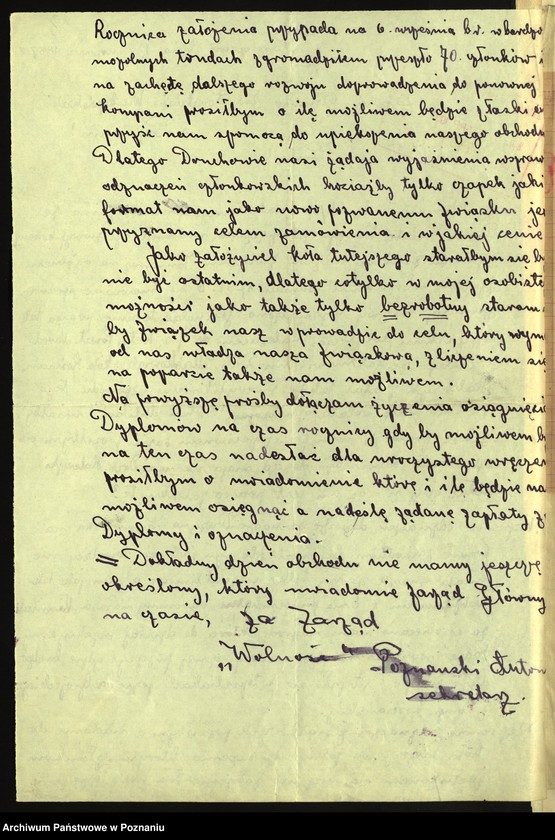 Rocznica założenia przypada na 6. września br. w bardzo
mozolnych trudach zgromadziłem przeszło 70. członków i
na zachętę dalszego rozwoju doprowadzenia do ponownej
kompani prosiłbym o ilę możliwem będzie łaski
przyjść nam spomocą do upiększenia naszego obchodu
Dlatego Druchowie nasi żądają wyjaśnienia wspraw
odznaczeń członkowskich hociażby tylko czapek jaki
format nam jako nowo pozwanemu związku je
przyznamy celem zamówienia i wjakiej cenie
Jako założyciel koła tutejszego starałbym się
nie być ostatnim, dlatego cotylko w mojej osobiste
możności jako także tylko bezrobotny staram
by związek nasz wprowadzić do celu, który wym
od nas władza nasza związkowa, z liczeniem się
na poparcie także nam możliwem.
Na powyższę prośby dołączam życzenia osiągnięci
Dyplomów na czas rocznicy gdy by możliwem b
na ten czas nadesłać dla uroczystego wręcze
prosiłbym o uwiadomienie którę i ilę będzie na
możliwem osięgnąć a nadeślę żądanę zapłaty z
Dyplomy i oznaczenia.
= Dokładny dzień obchodu nie mamy jeszczę
określony, który uwiadomie Zarząd Główny
na czasie, Za Zarząd
"Wolność" Poznanski Anton
sekretarz.
Archiwum Państwowe w Poznaniu